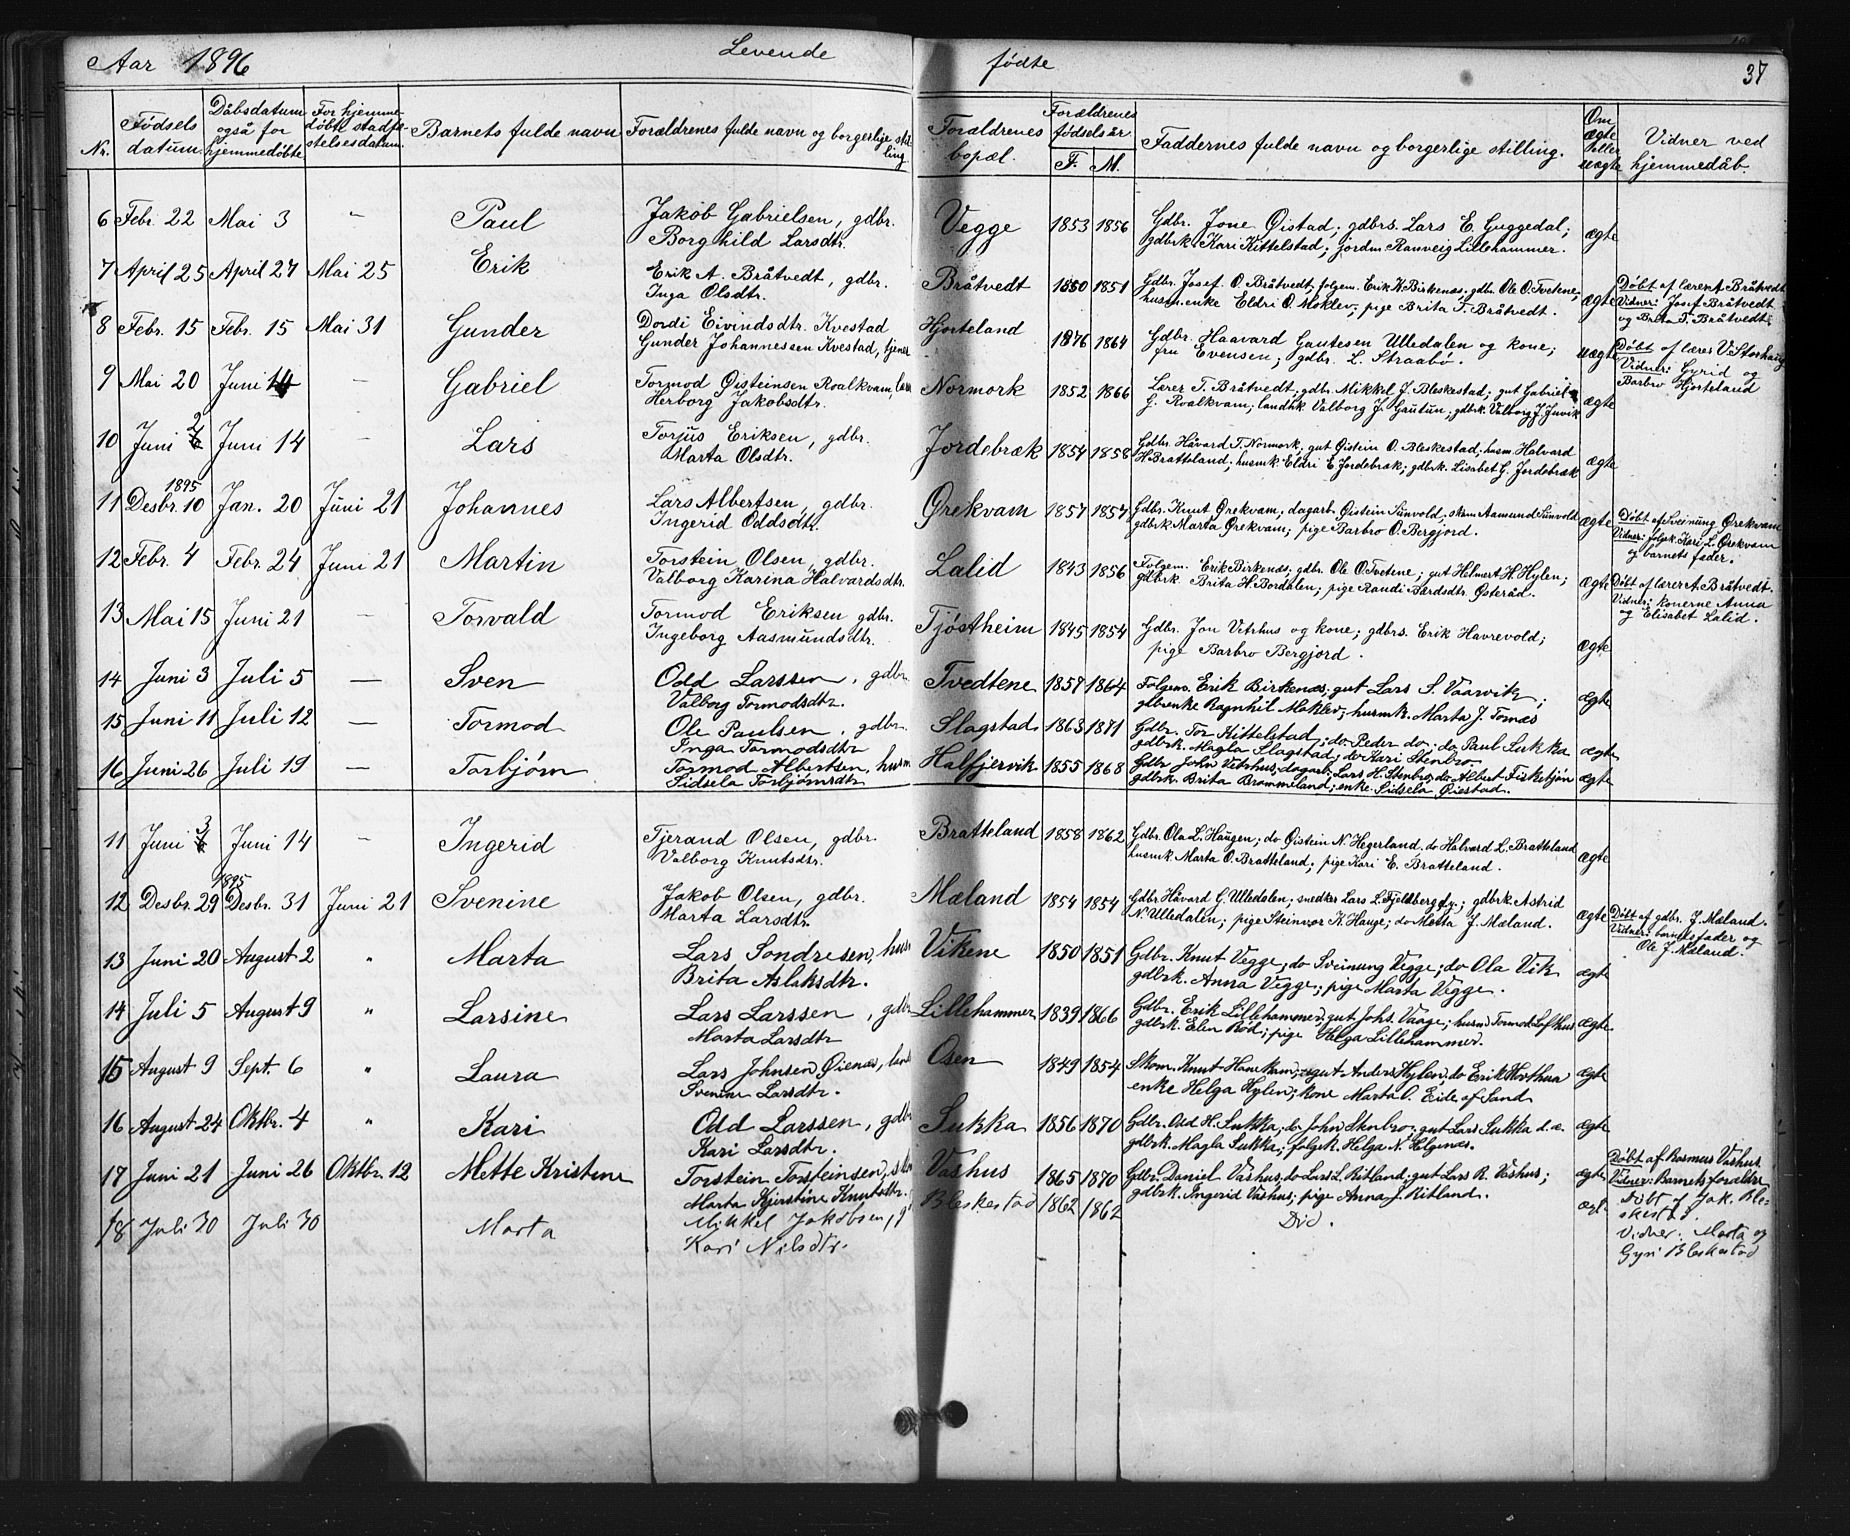 Aar 1896 Levende fødte 37
Nr. Fødsels datum. Dåbsdatum også for hjemmedøbte For hjemmedøbte stadfæstelsesdatum. Barnets fulde navn Forældrenes fulde navn og borgerlige stilling Forældrenes bopæl. Forældrenes fødselsår F. M. Faddernes fulde navn og borgerlige stilling. Om ægte eller uægte Vidner ved hjemmedåb.
6 Febr. 22 Mai 3 – Paul Jakob Gabrielsen, gdbr. Vegge 1853 1856 Gdbr. Jone Øistad; gdbrs. Lars E. Guggedal; ægte
Borghild Larsdtr. gdbrk. Kari Kittelstad; jordm. Ranveig Lillehammer.
7 April 25 April 27 Mai 25 Erik Erik A. Bråtvedt, gdbr. Bråtvedt 1850 1851 Gdbr. Josef O. Bråtvedt, folgem. Erik K. Birkenæs; gdbr. Ole O. Tvetene; ægte Døbt af lærer A. Bråtvedt
Inga Olsdtr. husm.enke Eldri O. Moklev; pige Brita T. Bråtvedt. Vidner: Josef Bråtvedt
og Brita T. Bråtvedt
8 Febr. 15 Febr. 15 Mai 31 Gunder Dordi Eivindsdtr. Kvestad Hjorteland 1876 1864 Gdbr. Haavard Gautesen Ulledalen og kone; uægte Døbt af lærer V. Storhaug
Gunder Johannessen Kvestad, tjener fru Evensen; gdbr. L. Straabø. Vidner: Gyrid og
Barbro Hjorteland
9 Mai 20 Juni 14 – Gabriel Tormod Øisteinsen Roalkvam, Normork 1852 1866 Lærer T. Bråtvedt, gdbr. Mikkel J. Bleskestad; gut Gabriel ægte
Herborg Jakobsdtr. G. Roalkvam; landhk. Valborg J. Gautun; gdbrk. Valborg J. Juvik
10 Juni 2 Juni 14 – Lars Torjus Eriksen, gdbr. Jordebræk 1854 1858 Gdbr. Håvard T. Normork, gut Øistein O. Bleskestad; husm. Halvard ægte
Marta Olsdtr. H. Bratteland; husmk. Eldri E. Jordebræk; gdbrk. Lisabet G. Jordebræk
11 1895 Desbr. 10 Jan. 20 Juni 21 Johannes Lars Albertsen, gdbr. Ørekvam 1857 1857 Gdbr. Knut Ørekvam; dagarb. Øistein Sunvold, skom Aamund Sunvold ægte Døbt af Sveinung Ørekvam
Ingerid Oddsdtr. gdbrk. Marta Ørekvam; pige Barbro O. Bergjord. Vidner: folgek. Kari L. Ørekvam
og barnets fader.
12 Febr. 4 Febr. 24 Juni 21 Martin Torstein Olsen, gdbr. Lalid 1843 1856 Folgem. Erik Birkenes; gdbr. Ole O. Tvetene; gut Helmert H. Hylen; ægte Døbt af lærer A. Bråtvedt.
Valborg Karina Halvardsdtr. gdbrk Brita H. Bordalen; pige Randi Bårdsdtr. Østeråd. Vidner: konerne Anna
og Elisabet Lalid.
13 Mai 15 Juni 21 – Torvald Tormod Eriksen gdbr. Tjøstheim 1845 1854 Gdbr. Jon Vetrhus og kone; gdbrs. Erik Havrevold; ægte
Ingeborg Aasmundsdtr. pige Barbro Bergjord.
14 Juni 3 Juli 5 – Sven Odd Larssen, gdbr. Tvedtene 1857 1864 Folgem. Erik Birkenæs; gut Lars S. Vaarvik; ægte
Valborg Tormodsdtr. gdbrenke Ragnhil Moklev; husmk. Marta J. Tornæs
15 Juni 11 Juli 12 – Tormod Ole Paulsen, gdbr. Slagstad 1863 1871 Gdbr. Tor Kittelstad; do Peder do; do Paul Sukka ægte
Inga Tormodsdtr gdbrk. Magla Slagstad; do Kari Stenbro.
16 Juni 26 Juli 19 – Torbjørn Tormod Albertsen, husm Halfjervik 1855 1868 Gdbr John Vetrhus; dagarb. Lars H. Stenbro; do Albert Fisketjøn ægte
Sidsela Torbjørnsdtr gdbrk. Brita Brommeland; enke Sidsela Øiestad.
11 Juni 3 Juni 14 – Ingerid Tjerand Olsen, gdbr. Bratteland 1858 1862 Gdbr. Ola L. Haugen; do Øistein N. Hegerland. do Halvard L. Bratteland ægte
Valborg Knutsdtr. husmk. Marta O. Bratteland; pige Kari E. Bratteland.
12 Desbr. 29 1895 Desbr. 31 Juni 21 Svenine Jakob Olsen, gdbr. Mæland 1854 1854 Gdbr Håvard G. Ulledalen; snedker Lars L. Fjeldberg; gdbrk Astrid ægte Døbt af gdbr. J. Mæland.
Marta Larsdtr. N. Ulledalen; pige Steinvor K. Hauge; do Metta J. Mæland. Vidner: barnets fader og
Ole J. Mæland.
13 Juni 20 August 2 " Marta Lars Sondresen, hus Vikene 1850 1851 Gdbr. Knut Vegge; do Sveinung Vegge; do Ola Vik ægt
Brita Aslaksdtr. gdbrk. Anna Vegge; pige Marta Vegge.
14 Juli 5 August 9 " Larsine Lars Larssen, gdbr Lillehammer 1839 1866 Gdbr. Erik Lillehammer, gut Johs. Vaage; husm Tormod Lofthus ægte
Marta Larsdtr gdbrk. Elen Rød; pige Helga Lillehammer.
15 August 9 Sept. 6 " Laura Lars Johnsen Øienæs, Osen 1849 1854 Skom. Knut Hauekam; gut Anders Hylen, do Erik ægte
Svenine Larsdtr. enke Helga Hylen; kone Marta O. Eide af Sand
16 August 24 Oktbr. 4 " Kari Odd Larssen, gdb Sukka 1856 1870 Gdbr. Odd H. Sukka; do John Stenbro; gut Lars Sukka d.æ. ægte
Kari Larsdtr. gdbrk. Magla Sukka; folgek. Helga N. Helgenæs.
17 Juni 21 Juni 26 Oktbr. 12 Mette Kristene Torstein Torsteinsen, Vashus 1865 1870 Gdbr. Daniel Våshus, do Lars L. Ritland; gut Lars R. Våshus; ægte Døbt af Rasmus Våshus.
Marta Kjerstine Knutsdtr. gdbrk. Ingerid Våshus; pige Anna J. Ritland. Vidner: Barnets forældre
18 Juli 30 Juli 30 Marta Mikkel Jakobsen, g Bleskestad 1862 1862 Død. ægt Døbt af Jak. Bleskestad.
Kari Nilsdtr. Vidner: Marta og
Gyri Bleskestad